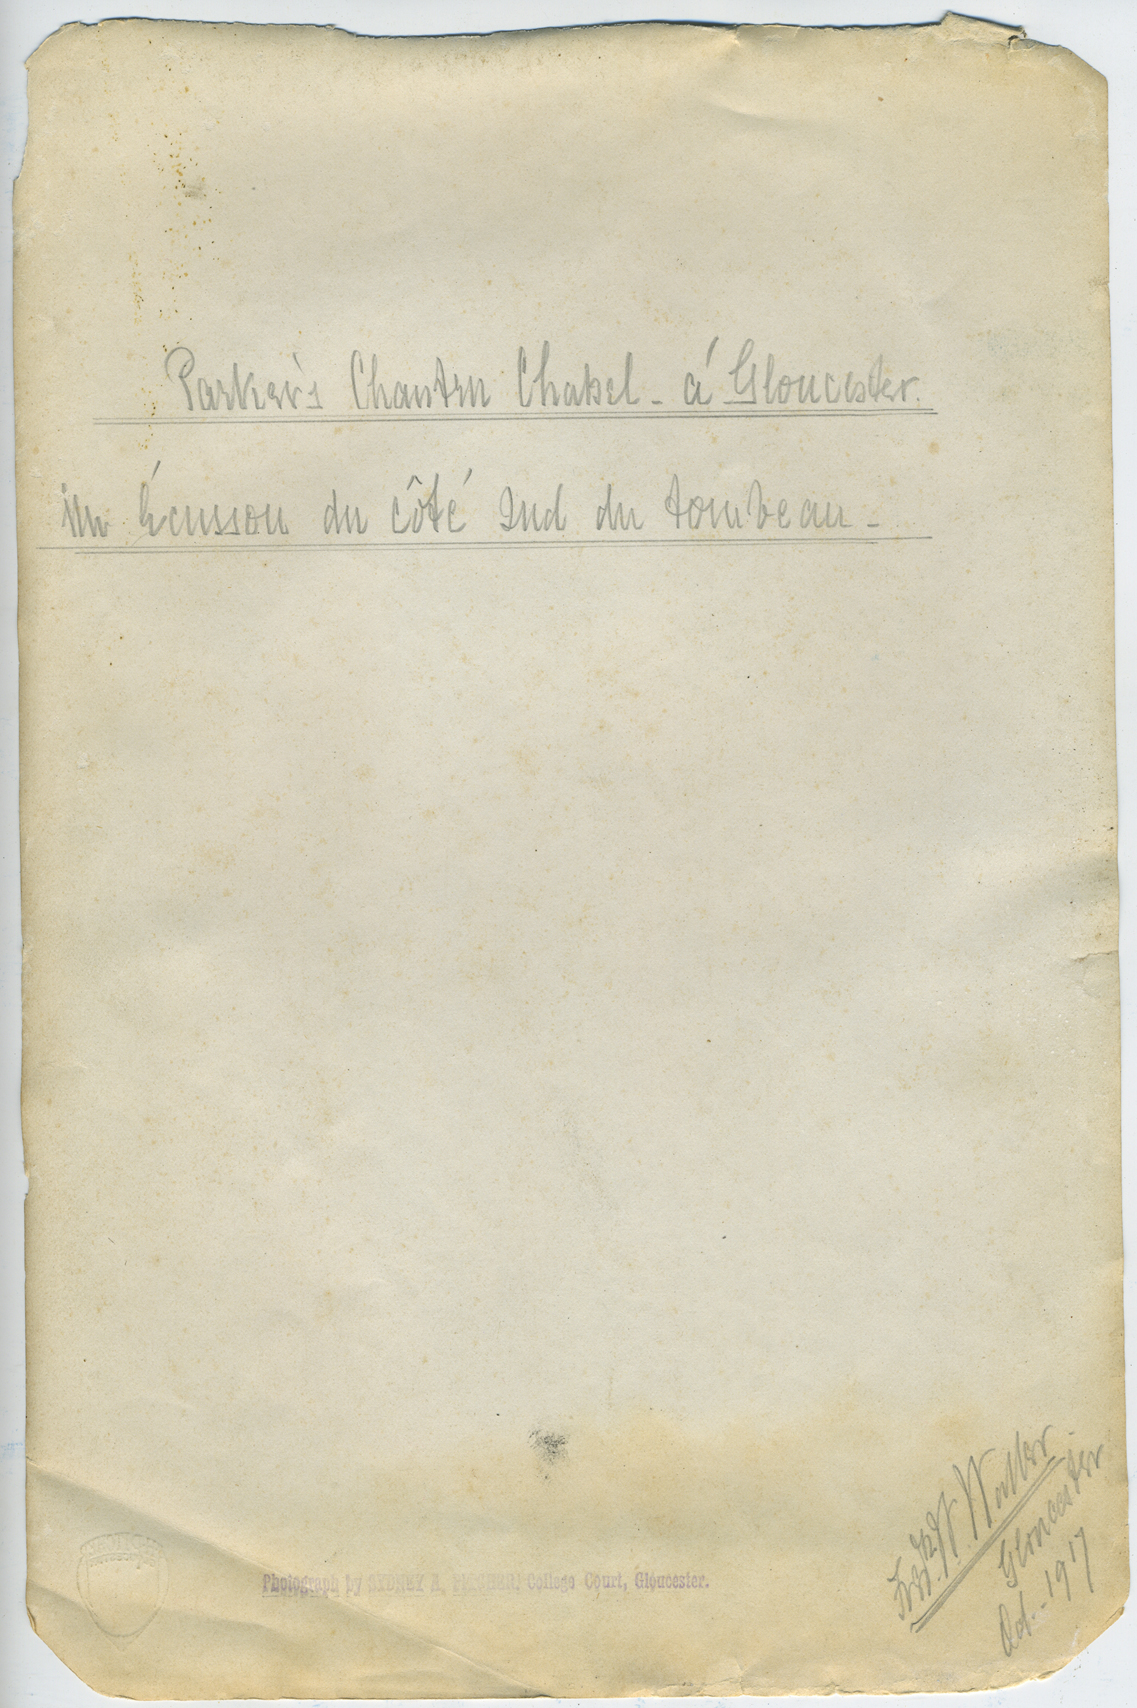 Parker's Chantry Chapel - á Gloucester.
un Écusson du côté Sud du tombeau -
Fredk. W. Waller
Gloucester
Oct. - 1917
Photograph by SYDNEY A. PITCHER, College Court, Gloucester.